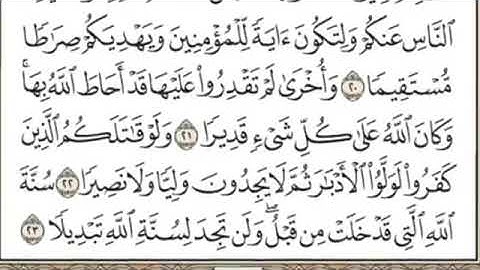 ٱلنَّاسِ عَنكُمۡ وَلِتَكُونَ ءَايَةٗ لِّلۡمُؤۡمِنِينَ وَيَهۡدِيَكُمۡ صِرَٰطٗا
مُّسۡتَقِيمٗا ٢٠ وَأُخۡرَىٰ لَمۡ تَقۡدِرُواْ عَلَيۡهَا قَدۡ أَحَاطَ ٱللَّهُ بِهَاۚ
وَكَانَ ٱللَّهُ عَلَىٰ كُلِّ شَيۡءٖ قَدِيرٗا ٢١ وَلَوۡ قَٰتَلَكُمُ ٱلَّذِينَ
كَفَرُواْ لَوَلَّوُاْ ٱلۡأَدۡبَٰرَ ثُمَّ لَا يَجِدُونَ وَلِيّٗا وَلَا نَصِيرٗا ٢٢ سُنَّةَ
ٱللَّهِ ٱلَّتِي قَدۡ خَلَتۡ مِن قَبۡلُۖ وَلَن تَجِدَ لِسُنَّةِ ٱللَّهِ تَبۡدِيلٗا ٢٣